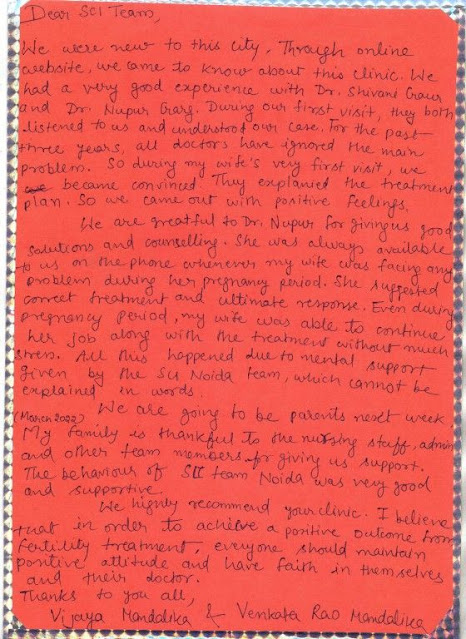 Dear SCI Team,
We were new to this city. Through online
website, we came to know about this clinic. We
had a very good experience with Dr. Shivani Gaur
and Dr. Nupur Garg. During our first visit, they both
listened to us and understood our case. For the past
three years, all doctors have ignored the main
problem. So during my wife's very first visit, we
became convinced. They explanied the treatment
plan. So we came out with positive feelings.
We are greatful to Dr. Nupur for giving us good
solutions and counselling. She was always available
to us on the phone whenever my wife was facing any
problem during her pregnancy period. She suggested
correct treatment and ultimate response. Even during
pregnancy period, my wife was able to continue
her job along with the treatment without much
stress. All this happened due to mental support
given by the SCI Noida team, which cannot be
explained in words.
We are going to be parents next week
(March 2022)
My family is thankful to the nursing staff, admin
and other team members for giving us support.
The behaviour of SCI team Noida was very good
and supportive.
We highly recommend your clinic. I believe
that in order to achieve a positive outcome from
fertility treatment, everyone should maintain
positive attitude and have faith in themselves
and their doctor.
Thanks to you all,
Vijaya Mandalika & Venkata Rao Mandalika